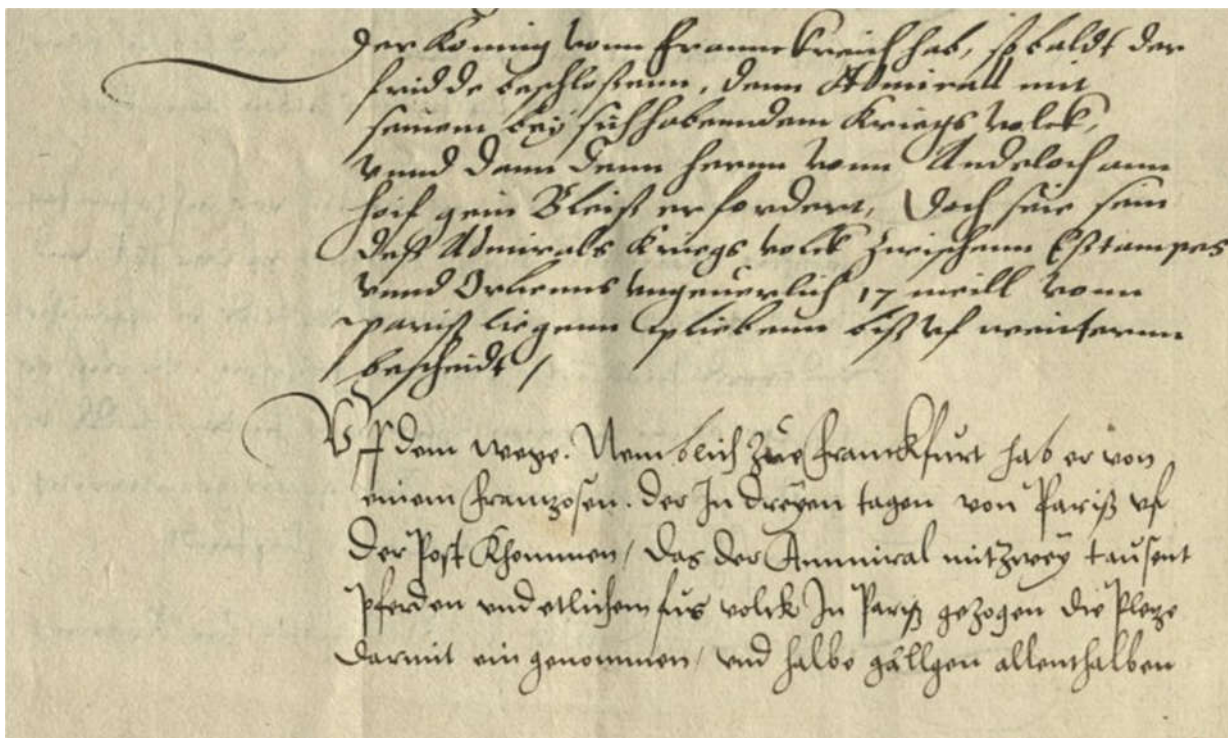 Der Konnig vonn Franneckreich hab, so baldt der
fridde beschlossenn, denn Admirall mit
seinem bey sich habenndem Kriegs volck,
vnnd dann denn herrnn vonn Andeloch ann
hoif gein Bleiß erfordert, Doch seie sein
deß Admirals Kriegs volck zwischenn Estampes
vnnd Orliens vngeuerlich 17 meill vonn
pariß liegenn plieben biß vf weiternn
bescheidt /
Vff dem wege. Nemblich zue Franckfurt hab er von
einem Franzosen. der In dreyen tagen von Pariß vf
der Post Khommen / das der Ammiral mit zwey tausent
Pferden vnd etlichem fus volck In Pariß gezogen die Pletze
darmit ein genommen / vnd halbe gallgen allenthalben